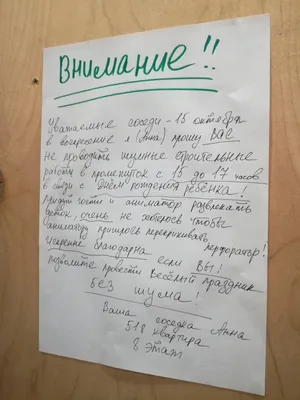 Внимание!!
Уважаемые соседи - 15 октября
в воскресение я (Анна) прошу ВАС
не проводить шумные строительные
работы в промежутке с 15 до 17 часов
в связи с "Днём" рождения ребёнка!
Придут гости и аниматор развлекать
деток, очень не хотелось чтобы
аниматору пришлось перекрикивать
перфоратор!
Искренне благодарна если ВЫ!
позволите провести весёлый праздник
без шума!
Ваша соседка Анна
518 квартира
8 этаж